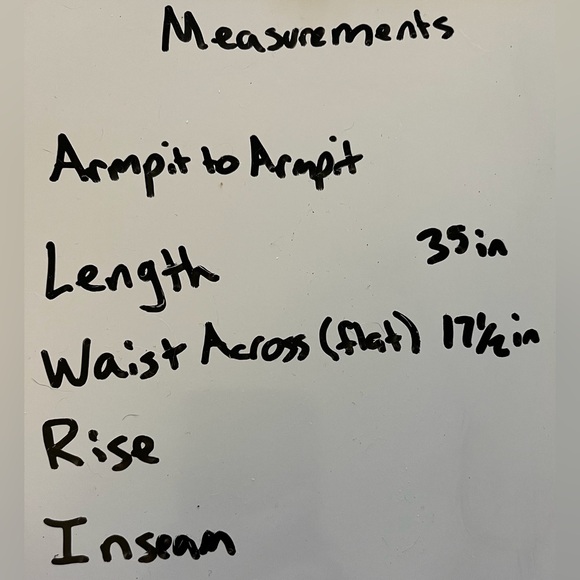 Measurements
Armpit to Armpit
Length 35in
Waist Across (flat) 17 1/2 in
Rise
Inseam